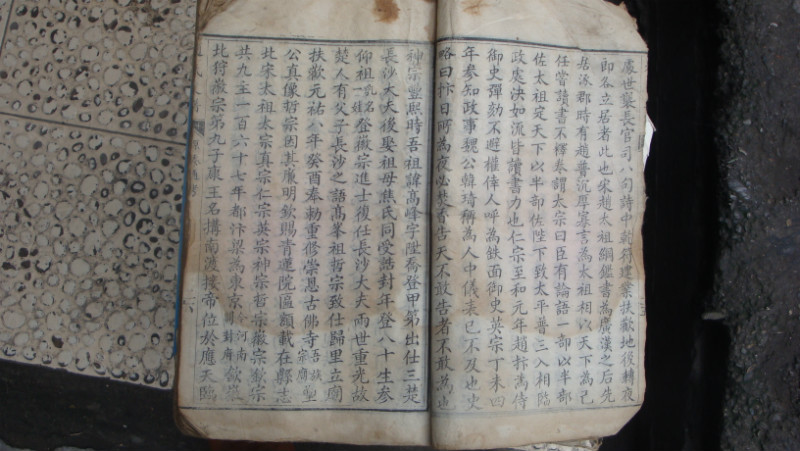 處世襲長官司八句詩中銅符建業扶歡地後轉夜
郎各立居者此也宋趙太祖綱鑑書為廣漢之后先
居涿郡時有趙普沉厚寡言為太祖相以天下為己
任嘗讀書不釋卷謂太宗曰臣有論語一部以半部
佐太祖定天下以半部佐陛下致太平普三入相臨
政處決如流皆讀書力也仁宗至和元年趙抃為侍
御史彈劾不避權倖人呼為鉄面御史英宗丁未四
年參知政事魏公韓琦稱為人中儀表已不及也火
略曰抃日所為夜必焚香告天不敢告者不敢為也
神宗豐熙時吾祖諱高峰字陞喬登甲第出仕三楚
長沙大夫後娶祖母熊氏同受誥封年登八十生參
仰祖乳名一娃登徽宗進士復任長沙大夫兩世重光故
楚人有父子長沙之語高峯祖哲宗致仕歸里立廟
扶歡元祐八年癸酉奉勅重修崇恩古佛寺吾族宗廟塑
公真像哲宗因其廉明欽賜青蓮院區額載在縣志
北宋太祖太宗真宗仁宗英宗神宗哲宗徽宗欽宗
共九主一百六十七年都汴梁為東京今河南開封府欽宗
北狩徽宗第九子康王名搆南渡接帝位於應天臨
六